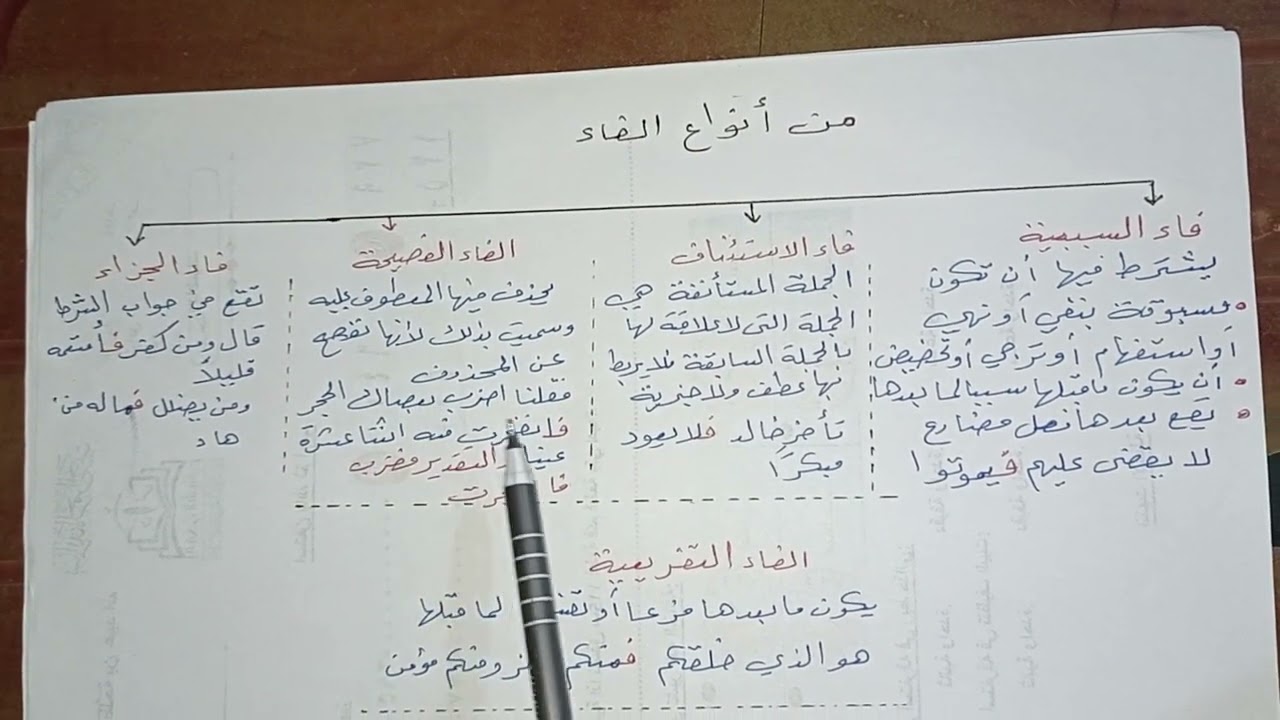 من أنواع الفاء
فاء السببية
يشترط فيها أن تكون
مسبوقة بنفي أو نهي
أو استفهام أو ترجي أو تحضيض
أن يكون ما قبلها سببا لما بعدها
تقع بعدها فعل مضارع
لا يقضى عليهم فيموتوا
فاء الاستئناف
الجملة المستأنفة هي
الجملة التي لا علاقة لها
بالجملة السابقة فلا يربط
بها عطف ولا خبرية
تأخر خالد فلا يعود
مبكرًا
الفاء الفصيحة
يحذف فيها المعطوف عليه
وسميت بذلك لأنها تفصح
عن المحذوف
فقلنا اضرب بعصاك الحجر
فانفجرت منه اثنتا عشرة
التقدير فضرب
فاء الجزاء
تقع في جواب الشرط
قال ومن كفر فأمتعه
قليلاً
ومن يضلل فما له من
هاد
الفاء التفريعية
يكون ما بعدها فرعا أو لما قبلها
هو الذي خلقكم فمنكم ومنكم مؤمن